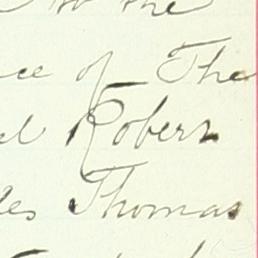 to the
ce of The
el Robert
les Thomas